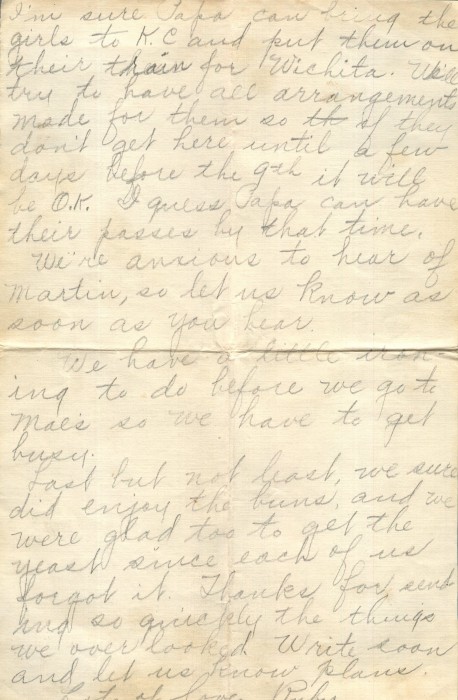 I'm sure Papa can bring the
girls to K.C and put them on
their train for Wichita. We'll
try to have all arrangements
made for them so if they
don't get here until a few
days before the 9th it will
be O.K. I guess Papa can have
their passes by that time.
We're anxious to hear of
Martin, so let us know as
soon as you hear.
We have a little iron-
ing to do before we go to
Mae's so we have to get
busy.
Last but not least, we sure
did enjoy the buns, and we
were glad too to get the
yeast since each of us
forgot it. Thanks for send
ing so quickly the things
we overlooked. Write soon
and let us know plans.
Lots of love,